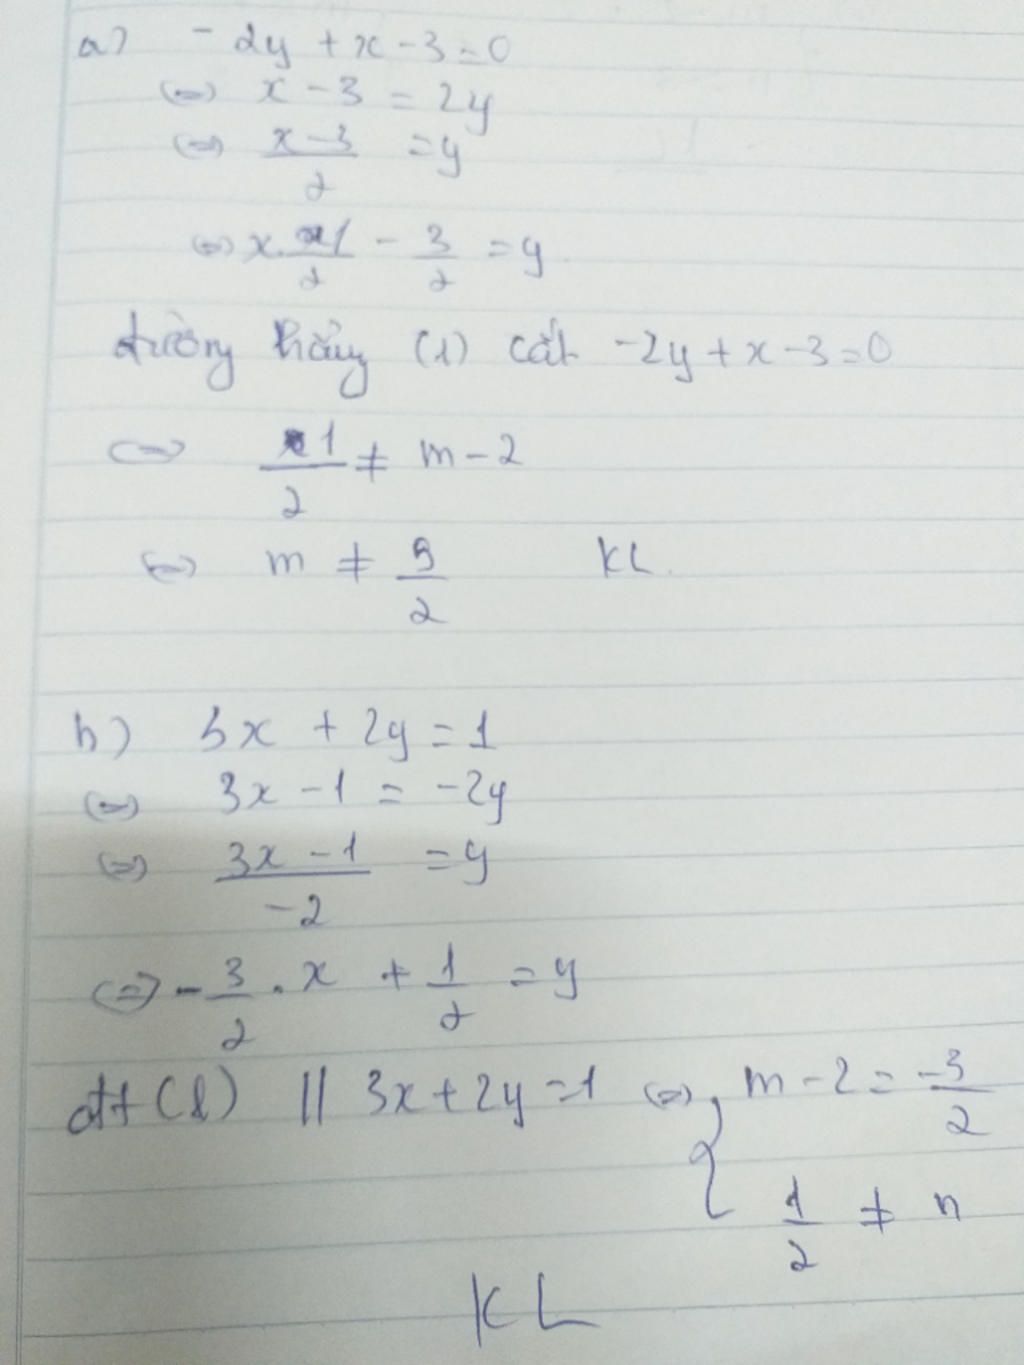 a) -2y + x - 3 = 0
<=> x - 3 = 2y
<=> x-3/2 = y
<=> x. 1/2 - 3/2 = y
đường thẳng (1) cắt -2y + x - 3 = 0
<=> 1/2 ≠ m - 2
<=> m ≠ 5/2 KL.
b) 3x + 2y = 1
<=> 3x - 1 = -2y
<=> 3x - 1/-2 = y
<=> -3/2 . x + 1/2 = y
đtt (1) // 3x + 2y = 1 <=> { m - 2 = -3/2
1/2 ≠ n
KL